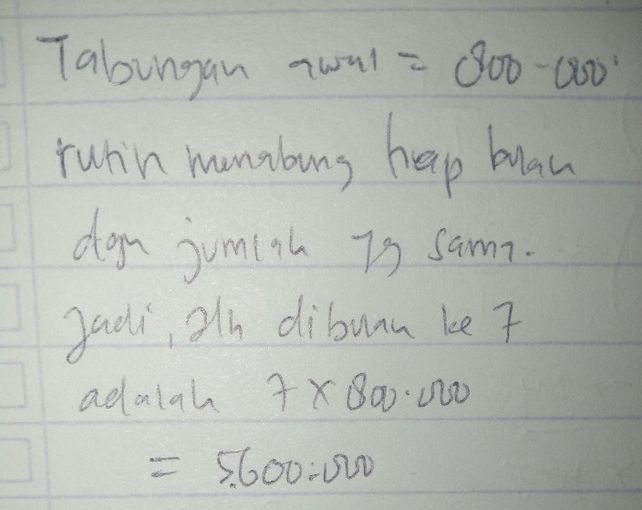 Tabungan awal = 800.000.
rutin menabung tiap bulan
dgn jumlah yg sama.
Jadi, jlh dibulan ke 7
adalah 7 x 800.000
= 5.600.000